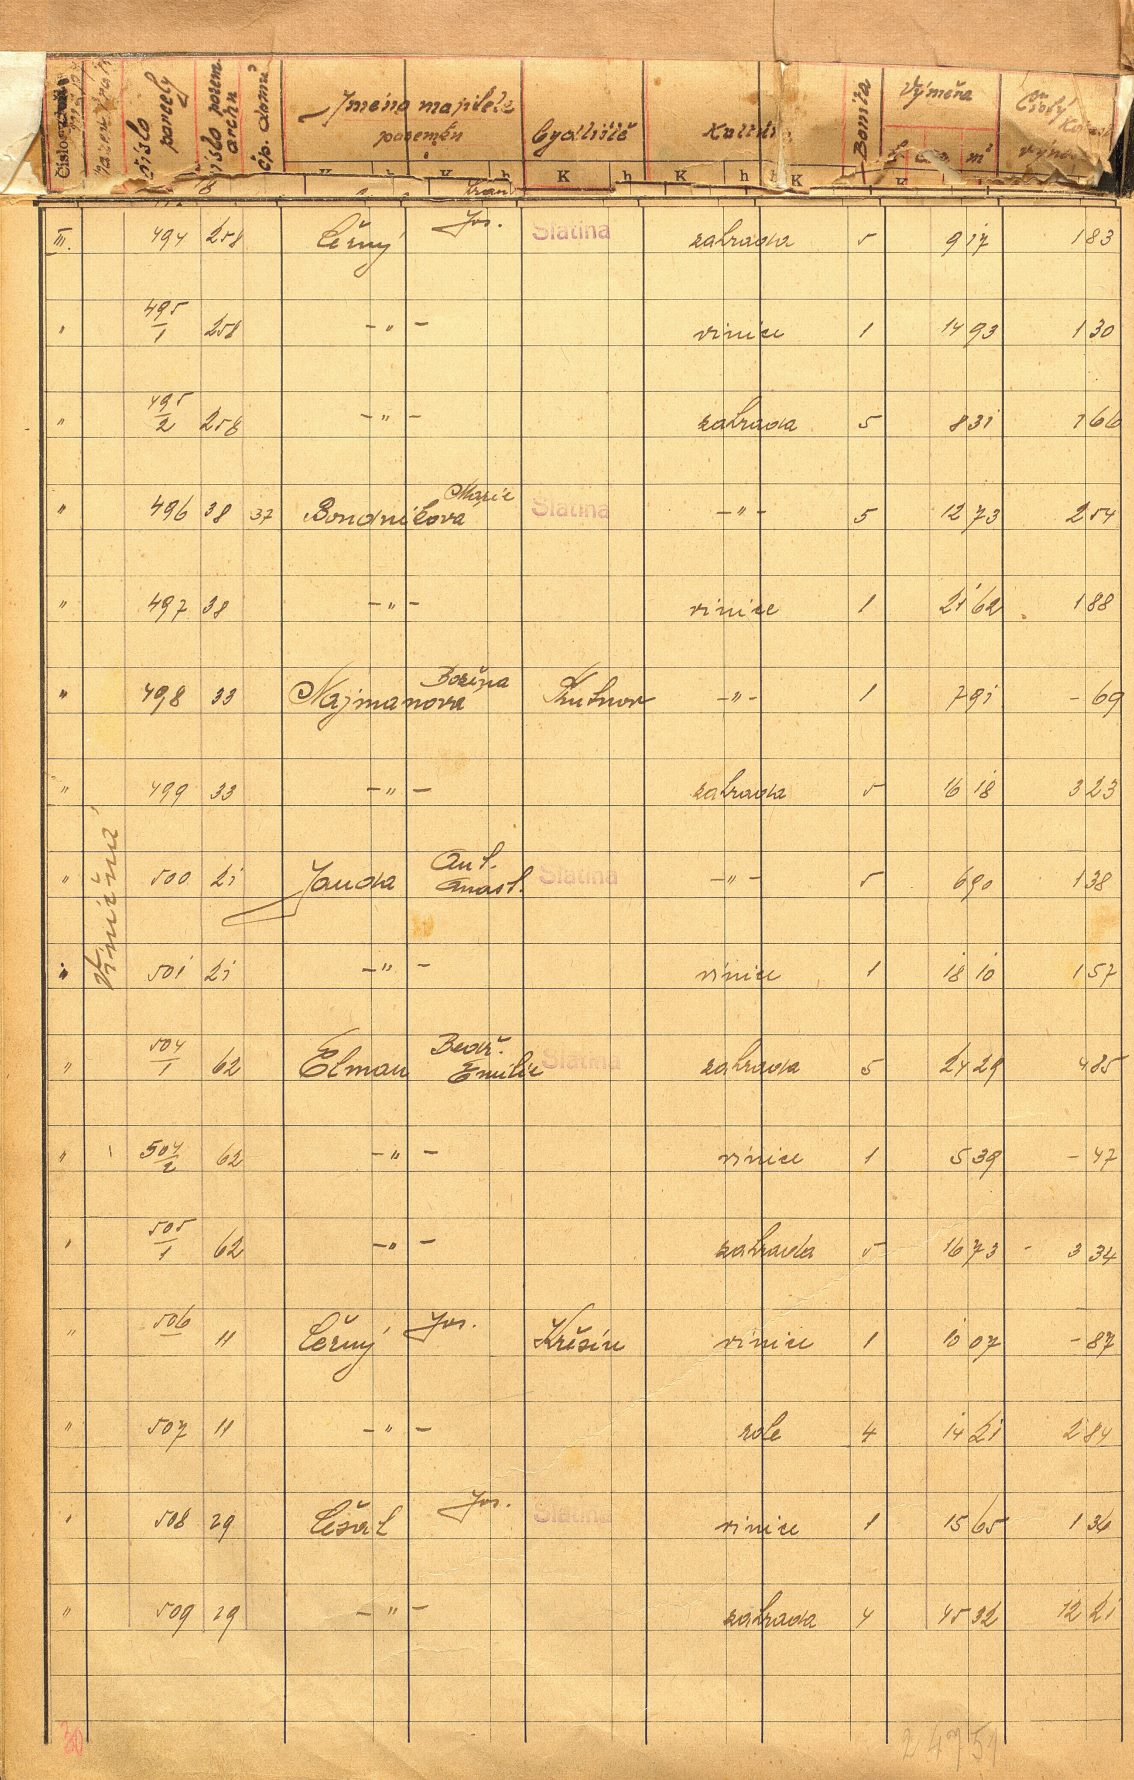 číslo parcely
číslo pozem. archu
čp. domu
Jméno majitele pozemku
bydliště
Kultura
Bonita
Výměra
m²
Čistý
K h K h K h K h K
III. 494 258 Černý Jos. Slatina zahrada 5 9 17 1 83
" 495/1 258 -"- vinice 1 14 93 1 30
" 495/2 258 -"- zahrada 5 8 31 1 66
" 496 38 37 Marie Slatina -"- 5 12 73 2 54
" 497 38 -"- vinice 1 21 62 1 88
" 498 33 Najmanova Božena -"- 1 7 91 - 69
" 499 33 -"- zahrada 5 16 18 3 23
Viničná
" 500 21 Janda Ant. Anast. Slatina -"- 5 6 90 1 38
" 501 21 -"- vinice 1 18 10 1 57
" 504/1 62 Elman Bedř. Emilie Slatina zahrada 5 24 29 4 85
" 504/2 62 -"- vinice 1 5 39 - 47
" 505/1 62 -"- zahrada 5 16 73 - 3 34
" 506 11 Černý Jos. Křesín vinice 1 10 07 - 87
" 507 11 -"- role 4 14 21 2 84
" 508 29 Češal Jos. Slatina vinice 1 15 65 1 36
" 509 29 -"- zahrada 4 45 32 12 21
30